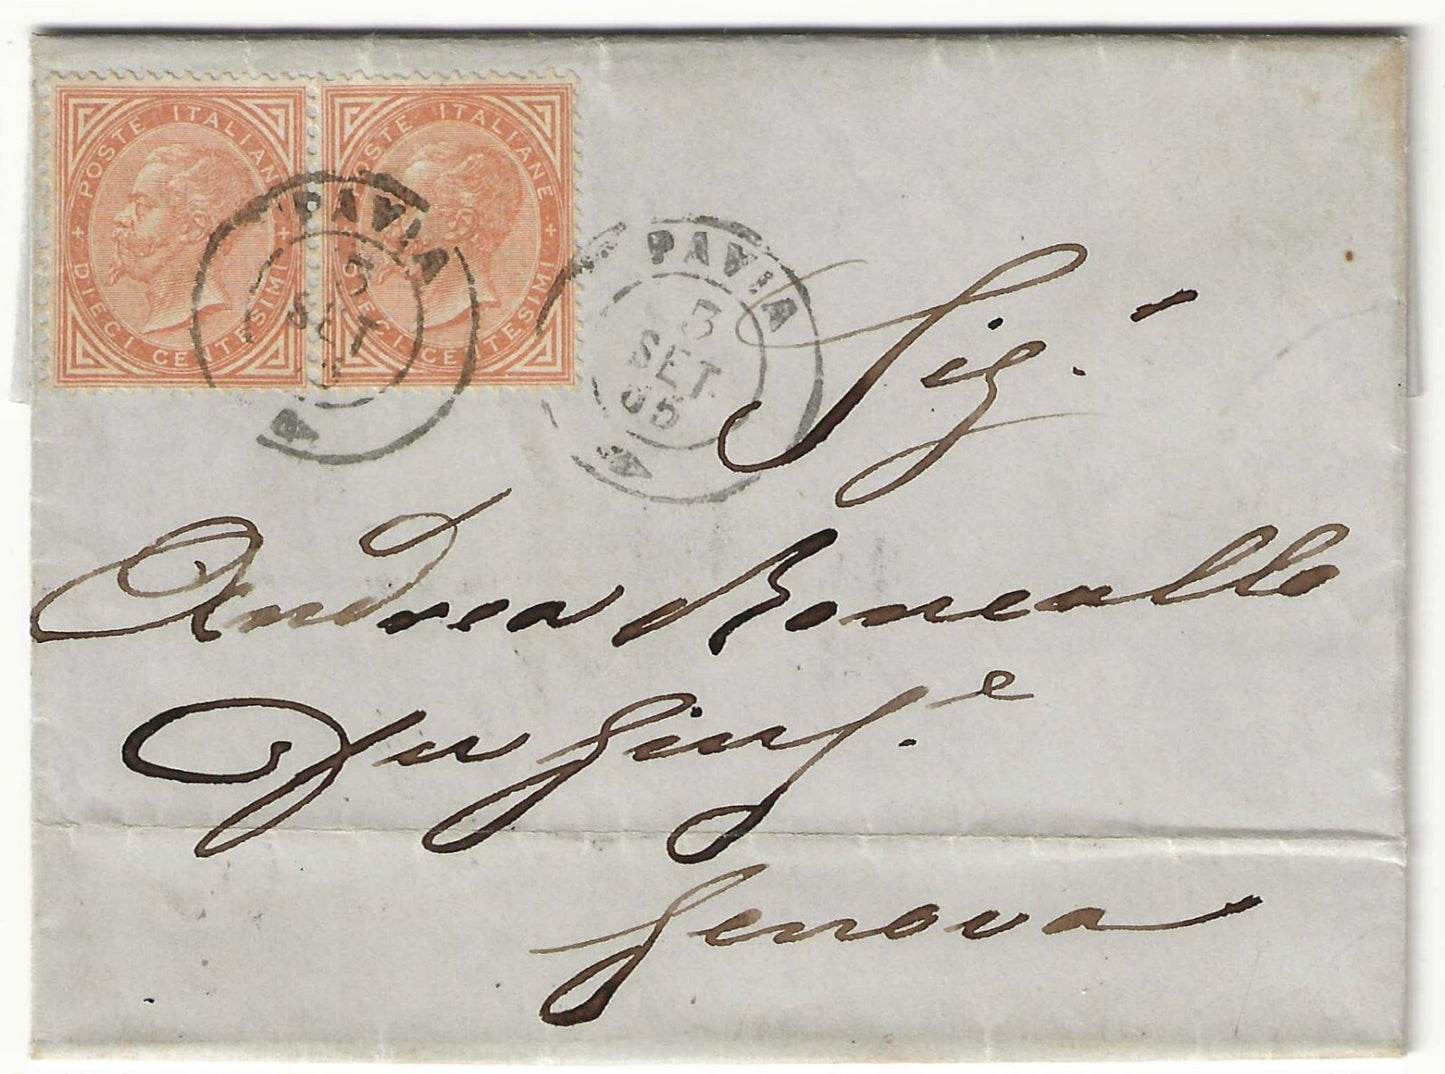 POSTE ITALIANE
DIECI CENTESIMI
POSTE ITALIANE
DIECI CENTESIMI
PAVIA
3
SET
PAVIA
3
SET
65
A
A
Sig.
Andrea Roncallo
Genova